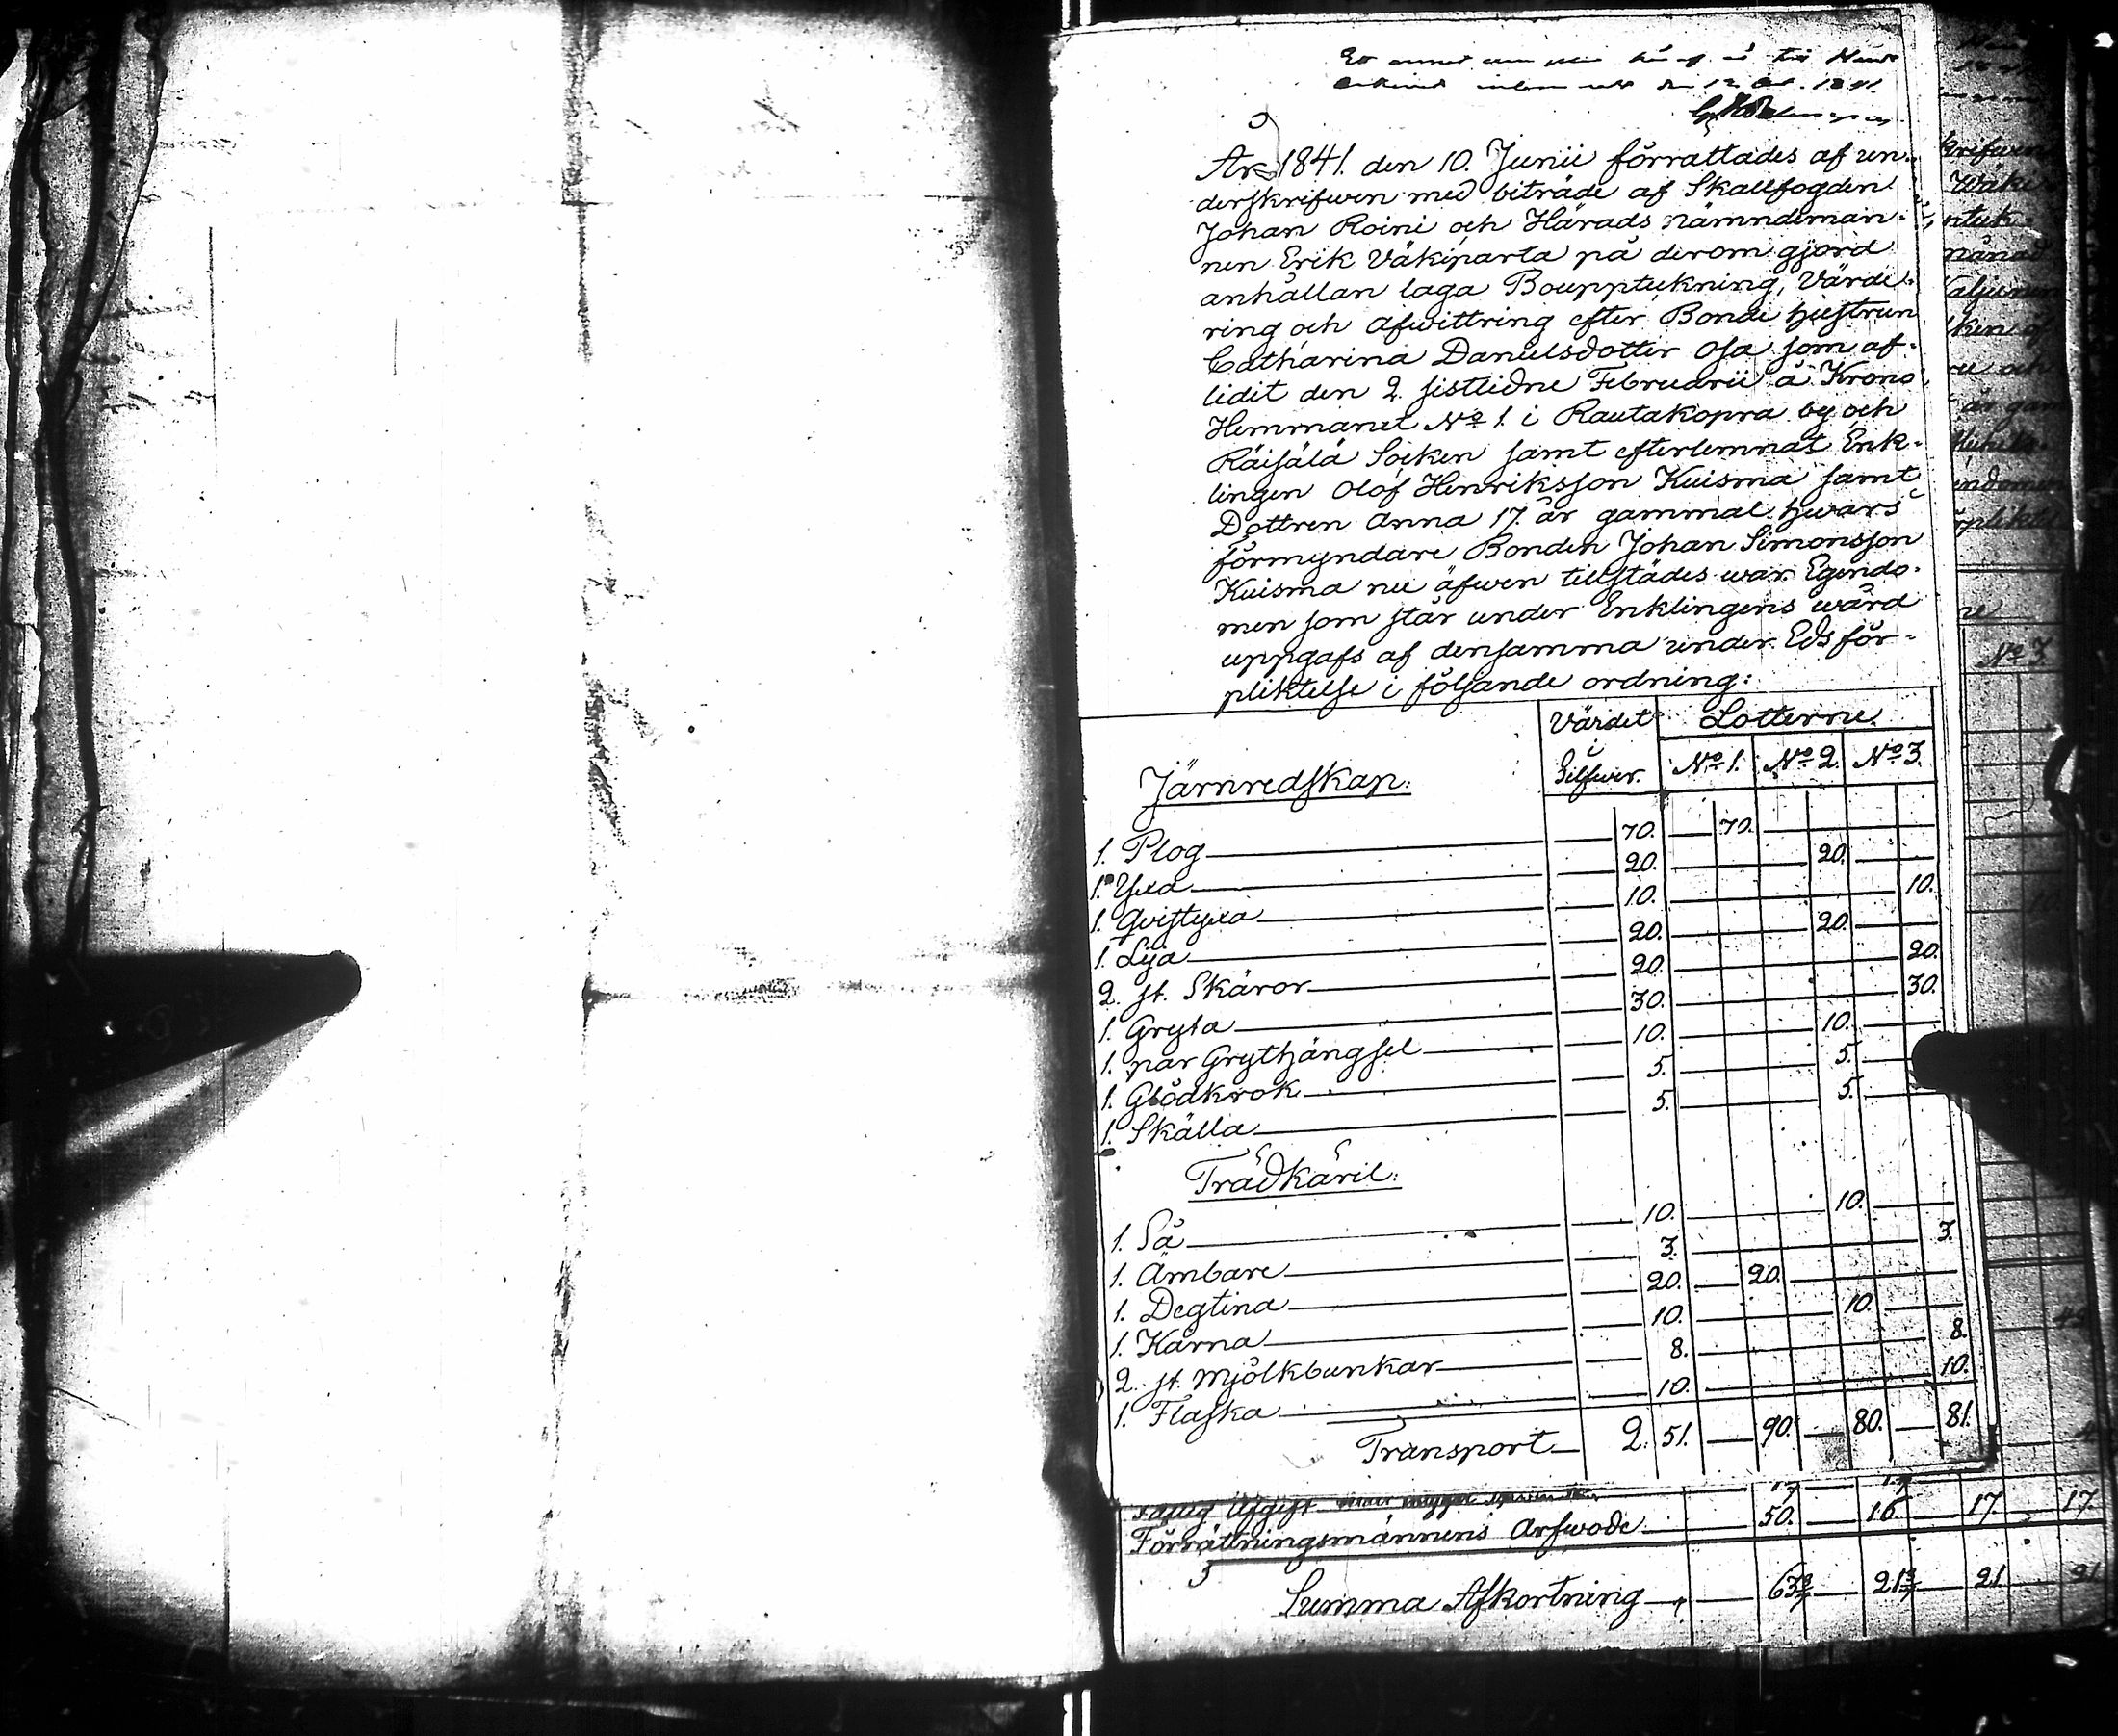 den 12 Oct. 1841.
År 1841. den 10. Junii förrättades af un-
derskrifwen med biträde af Skallfogden
Johan Roini och Härads nämndeman-
nen Erik Väkiparta på derom gjord
anhållan laga Bouppteckning, Värde-
ring och afwittring efter Bonde hustrun
Catharina Danielsdotter Osa som af-
lidit den 2 sistledne Februarii å Krono
Hemmanet No 1. i Rautakopra by och
Räisälä Socken samt efterlemnat Enk-
lingen Olof Henriksson Kuisma samt
Dottren Anna 17. år gammal hwars
förmyndare Bonden Johan Simonsson
Kuisma nu äfwen tillstädes war. Egendo-
men som står under Enklingens wård
uppgafs af densamma under Eds för-
pliktelse i följande ordning:
Järnredskap: Värdet i Silfwer. Lotterne.
No 1. No 2. No 3.
1. Plog 70. 70.
1. Yxa 20. 20.
1. Qvistyxa 10. 10.
1. Lija 20. 20.
2. st. Skäror 20. 20.
1. Gryta 30. 30.
1. par Grythängsel 10. 10.
1. Glödkrok 5. 5.
1. Skälla 5. 5.
Trädkäril:
1. Så 10. 10.
1. Ämbare 3. 3.
1. Degtina 20. 20.
1. Kärna 10. 10.
2. st. Mjölkbunkar 8. 8.
1. Flaska 10. 10.
Transport 2. 51. 90. 80. 81.
Fattig Afgift
Förrättningsmännens Arfwode 50. 16 17. 17.
Summa Afkortning 21 21